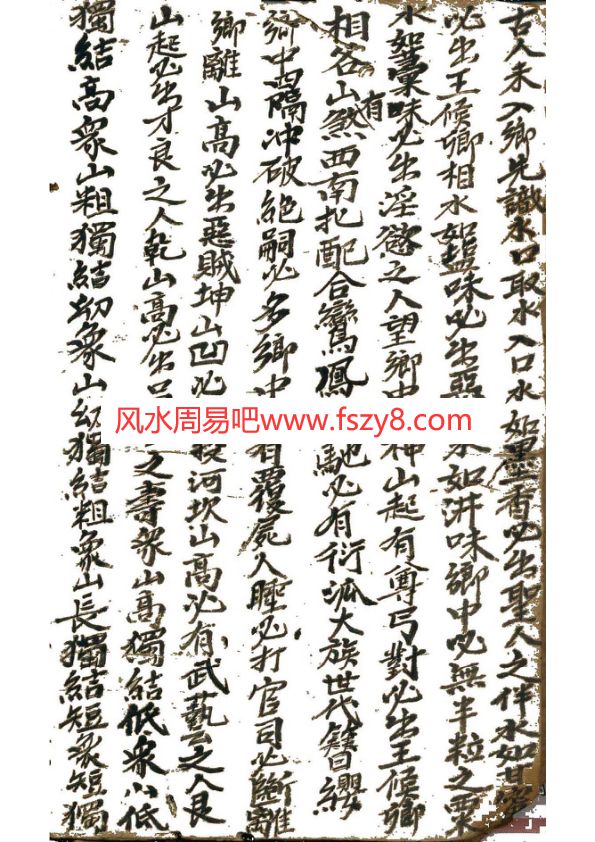 古人未入鄉先識水口取水入口水如墨香必出聖人之伴水如甘蜜
必出王侯卿相水如盐味必出惡 水如泔味鄉中必無半粒之粟
水如藁味必出淫慾之人望鄉中 神山起有尊弓對必出王侯卿
相谷有山煞西南扎配合鸞鳳 馳必有衍派大族世代簪纓
鄉中四隔冲破絶嗣必多鄉中 有覆屍人睡必打官司必斷離
鄉離山高必出惡賊坤山凹必 投河坎山高必有武藝之人艮
山起必出才良之人乾山高必出 之壽衆山高獨結低衆山低
獨結高衆山粗獨結幼衆山幼獨結粗衆山長獨結短衆短獨
风水周易吧www.fszy8.com